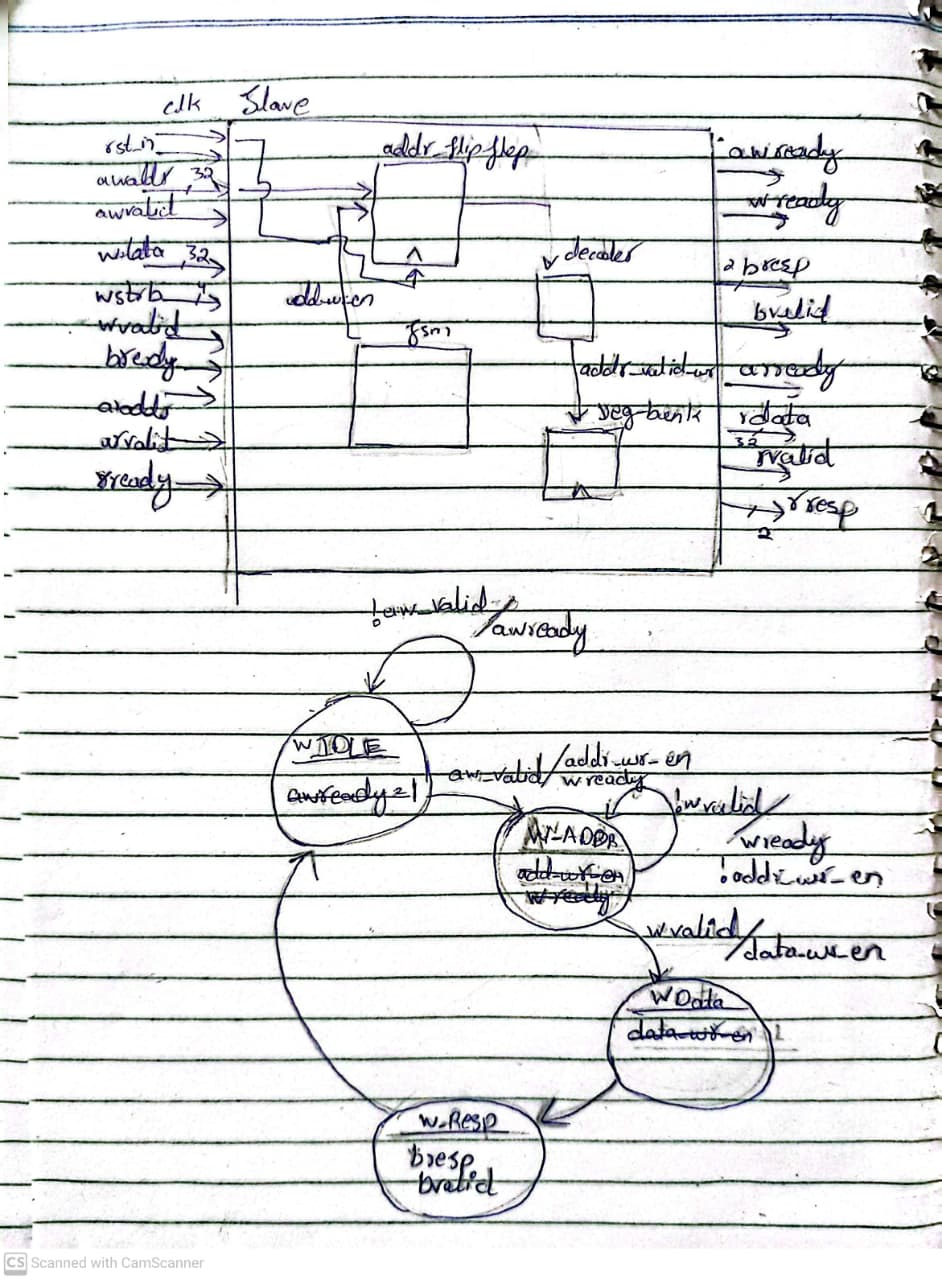 clk Slave
rst_n
awaddr 32
awvalid
wdata 32
wstrb 4
wvalid
bready
araddr
arvalid
rready
addr_flipflop
decoder
add-wr-en
fsm
addr_valid_wr
reg-bank
awready
wready
2 bresp
bvalid
arready
rdata
32
rvalid
rresp
2
!aw_valid / awready
WIDLE
awready=1
aw_valid / addr-wr-en
wready
W-ADDR
add-wr-en
w-ready
!wvalid /
wready
!addr-wr-en
wvalid / data-wr-en
WData
data-wr-en 1
W-Resp
bresp
bvalid
CS Scanned with CamScanner